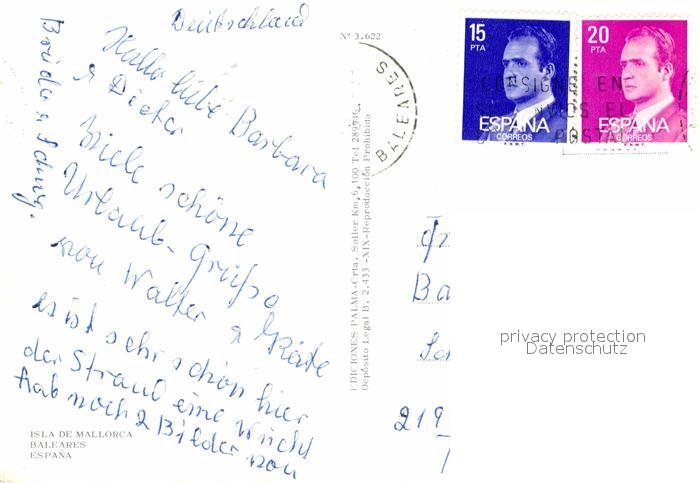 Deutschland
Hallo liebe Barbara
u Dieter
Viele schöne
Urlaub-Grüße
von Walter u
es ist sehr schön hier
der Strand eine Wucht
hab noch 2 Bilder von
Bruder u
ISLA DE MALLORCA
BALEARES
ESPAÑA
Nº 3.622
EDICIONES PALMA-Crta. Soller Km. 6,100 Tel
Depósito Legal B. 2.433 -XIX-Reproducción Prohibida
BALEARES
15
PTA
ESPAÑA
CORREOS
F.N.M.T.
20
PTA
ESPAÑA
CORREOS
F.N.M.T.
CONSIGNE EN
ENVIOS EL
POSTAL
Ba
219
privacy protection
Datenschutz